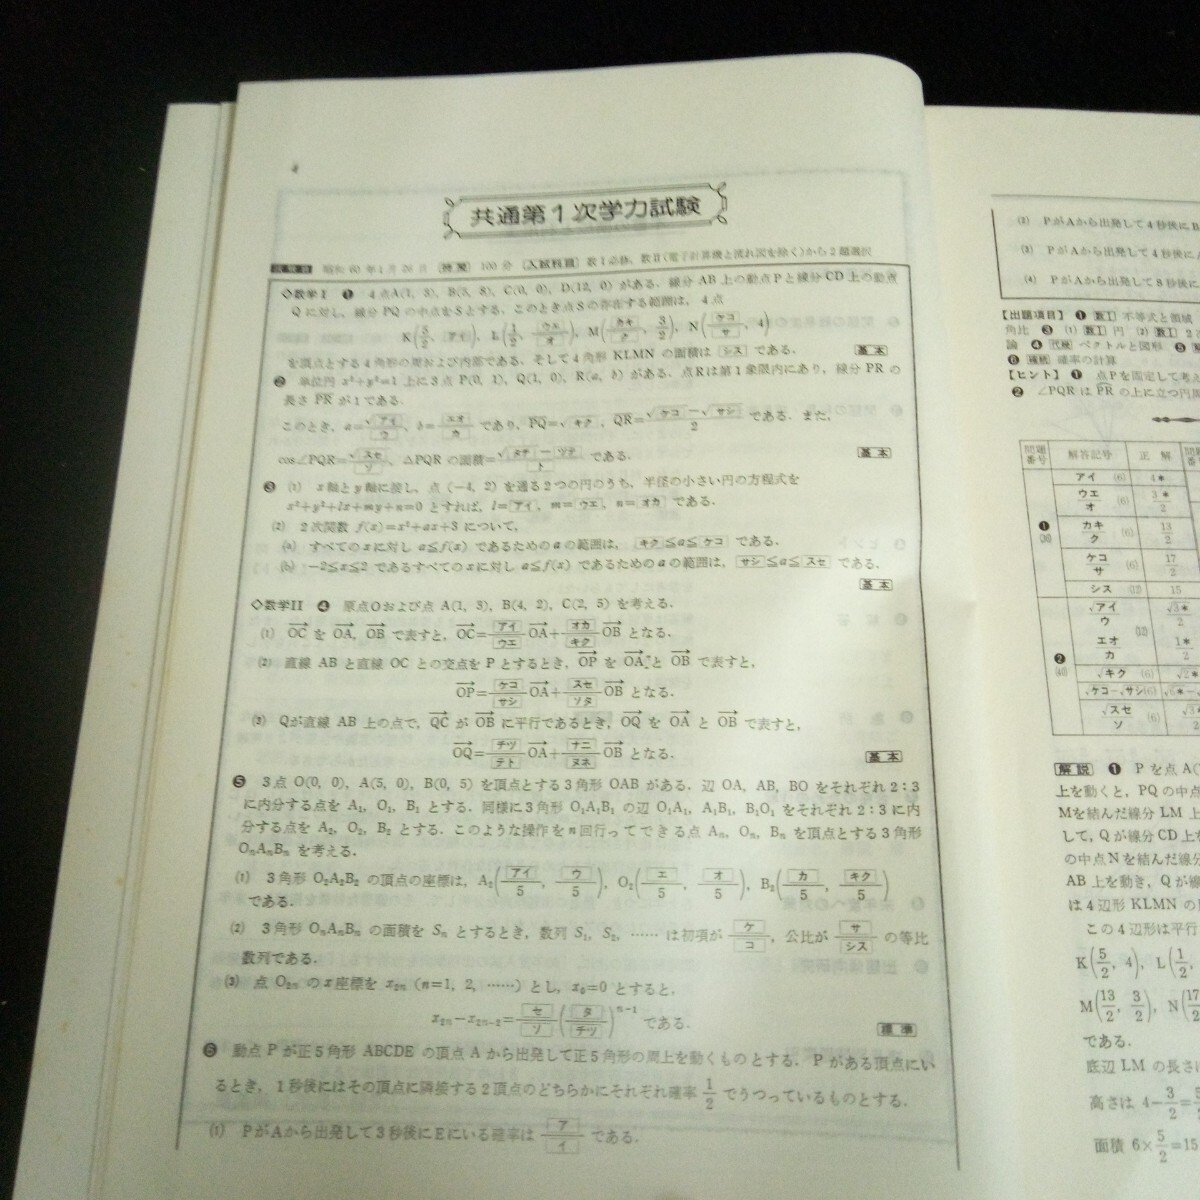 共通第1次学力試験
試験日 昭和60年1月26日 時間 100分 入試科目 数I必修, 数II(電子計算機と流れ図を除く)から2題選択
◇数学I ❶ 4点A(1, 3), B(5, 8), C(0, 0), D(12, 0) がある. 線分 AB 上の動点Pと線分 CD 上の動点
Q に対し, 線分 PQ の中点をSとする. このとき点Sの存在する範囲は, 4点
K(5/2, アイ), L(1/2, ウエ/オ), M(カキ/ク, 3/2), N(ケコ/サ, 4)
を頂点とする4角形の周および内部である. そして4角形 KLMN の面積は シス である. 基本
❷ 単位円 x²+y²=1 上に3点 P(0, 1), Q(1, 0), R(a, b) がある. 点Rは第1象限内にあり, 線分 PR の
長さ PR が1である.
このとき, a=√アイ/ウ, b=エオ/カ であり, PQ=√キク, QR=√ケコ−√サシ/2 である. また,
cos∠PQR=√スセ/ソ, △PQR の面積=√タチ−ツテ/ト である. 基本
❸ (1) x軸とy軸に接し, 点(−4, 2) を通る2つの円のうち, 半径の小さい円の方程式を
x²+y²+lx+my+n=0 とすれば, l=アイ, m=ウエ, n=オカ である.
(2) 2次関数 f(x)=x²+ax+3 について,
(a) すべてのxに対し a≦f(x) であるためのaの範囲は, キク≦a≦ケコ である.
(b) −2≦x≦2 であるすべてのxに対し a≦f(x) であるためのaの範囲は, サシ≦a≦スセ である.
基本
◇数学II ❹ 原点Oおよび点 A(1, 3), B(4, 2), C(2, 5) を考える.
(1) OC を OA, OB で表すと, OC=アイ/ウエ OA+オカ/キク OB となる.
(2) 直線 AB と直線 OC との交点を P とするとき, OP を OA と OB で表すと,
OP=ケコ/サシ OA+スセ/ソタ OB となる.
(3) Qが直線 AB 上の点で, QC が OB に平行であるとき, OQ を OA と OB で表すと,
OQ=チツ/テト OA+ナニ/ヌネ OB となる. 基本
❺ 3点 O(0, 0), A(5, 0), B(0, 5) を頂点とする3角形 OAB がある. 辺 OA, AB, BO をそれぞれ2:3
に内分する点を A₁, O₁, B₁ とする. 同様に3角形 O₁A₁B₁ の辺 O₁A₁, A₁B₁, B₁O₁ をそれぞれ2:3に内
分する点を A₂, O₂, B₂ とする. このような操作をn回行ってできる点 Aₙ, Oₙ, Bₙ を頂点とする3角形
OₙAₙBₙ を考える.
(1) 3角形 O₂A₂B₂ の頂点の座標は, A₂(アイ/5, ウ/5), O₂(エ/5, オ/5), B₂(カ/5, キク/5)
である.
(2) 3角形 OₙAₙBₙ の面積を Sₙ とするとき, 数列 S₁, S₂, …… は初項が ケ/コ, 公比が サ/シス の等比
数列である.
(3) 点 O₂ₙ のx座標を x₂ₙ (n=1, 2, ……) とし, x₀=0 とすると,
x₂ₙ−x₂ₙ₋₂=セ/ソ(タ/チツ)ⁿ⁻¹ である. 標準
❻ 動点 P が正5角形 ABCDE の頂点 A から出発して正5角形の周上を動くものとする. P がある頂点にい
るとき, 1秒後にはその頂点に隣接する2頂点のどちらかにそれぞれ確率 1/2 でうつっているものとする.
(1) PがAから出発して3秒後にEにいる確率は ア/イ である.
(2) PがAから出発して4秒後にB
(3) PがAから出発して4秒後に
(4) PがAから出発して8秒後に
【出題項目】 ❶ 数I 不等式と領域
角比 ❸ (1) 数I 円 (2) 数I 2
論 ❹ 代幾 ベクトルと図形 ❺
❻ 確率の計算
【ヒント】 ❶ 点Pを固定して考え
❷ ∠PQR は PR の上に立つ円周
問題番号 解答記号 正解 問題番号
❶ アイ (6) 4*
ウエ/オ (6) 3*/2
カキ/ク (6) 13/2
ケコ/サ (6) 17/2
シス (12) 15
❷ √アイ/ウ √3*/2
エオ/カ (12) 1*/2
√キク (6) √2*
√ケコ−√サシ(6) √6*−
√スセ/ソ (6) √3*/2
解説 ❶ P を点 A(
上を動くと, PQ の中点
Mを結んだ線分 LM 上
して, Q が線分 CD 上を
の中点Nを結んだ線分
AB 上を動き, Q が線
は4辺形 KLMN の
この4辺形は平行
K(5/2, 4), L(1/2,
M(13/2, 3/2), N(17/2
である.
底辺 LM の長さは
高さは 4−3/2=5/2
面積 6×5/2=15